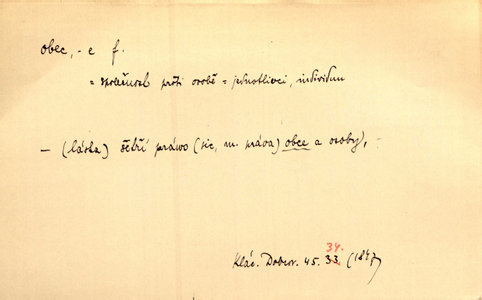 obec, -e f.
= společnost proti osobě = jednotlivci, individuu
— (láska) šetří práwo (sic, m. práva) obce a osoby, —
34.
Klác. Dobrov. 45. 33. (1847)